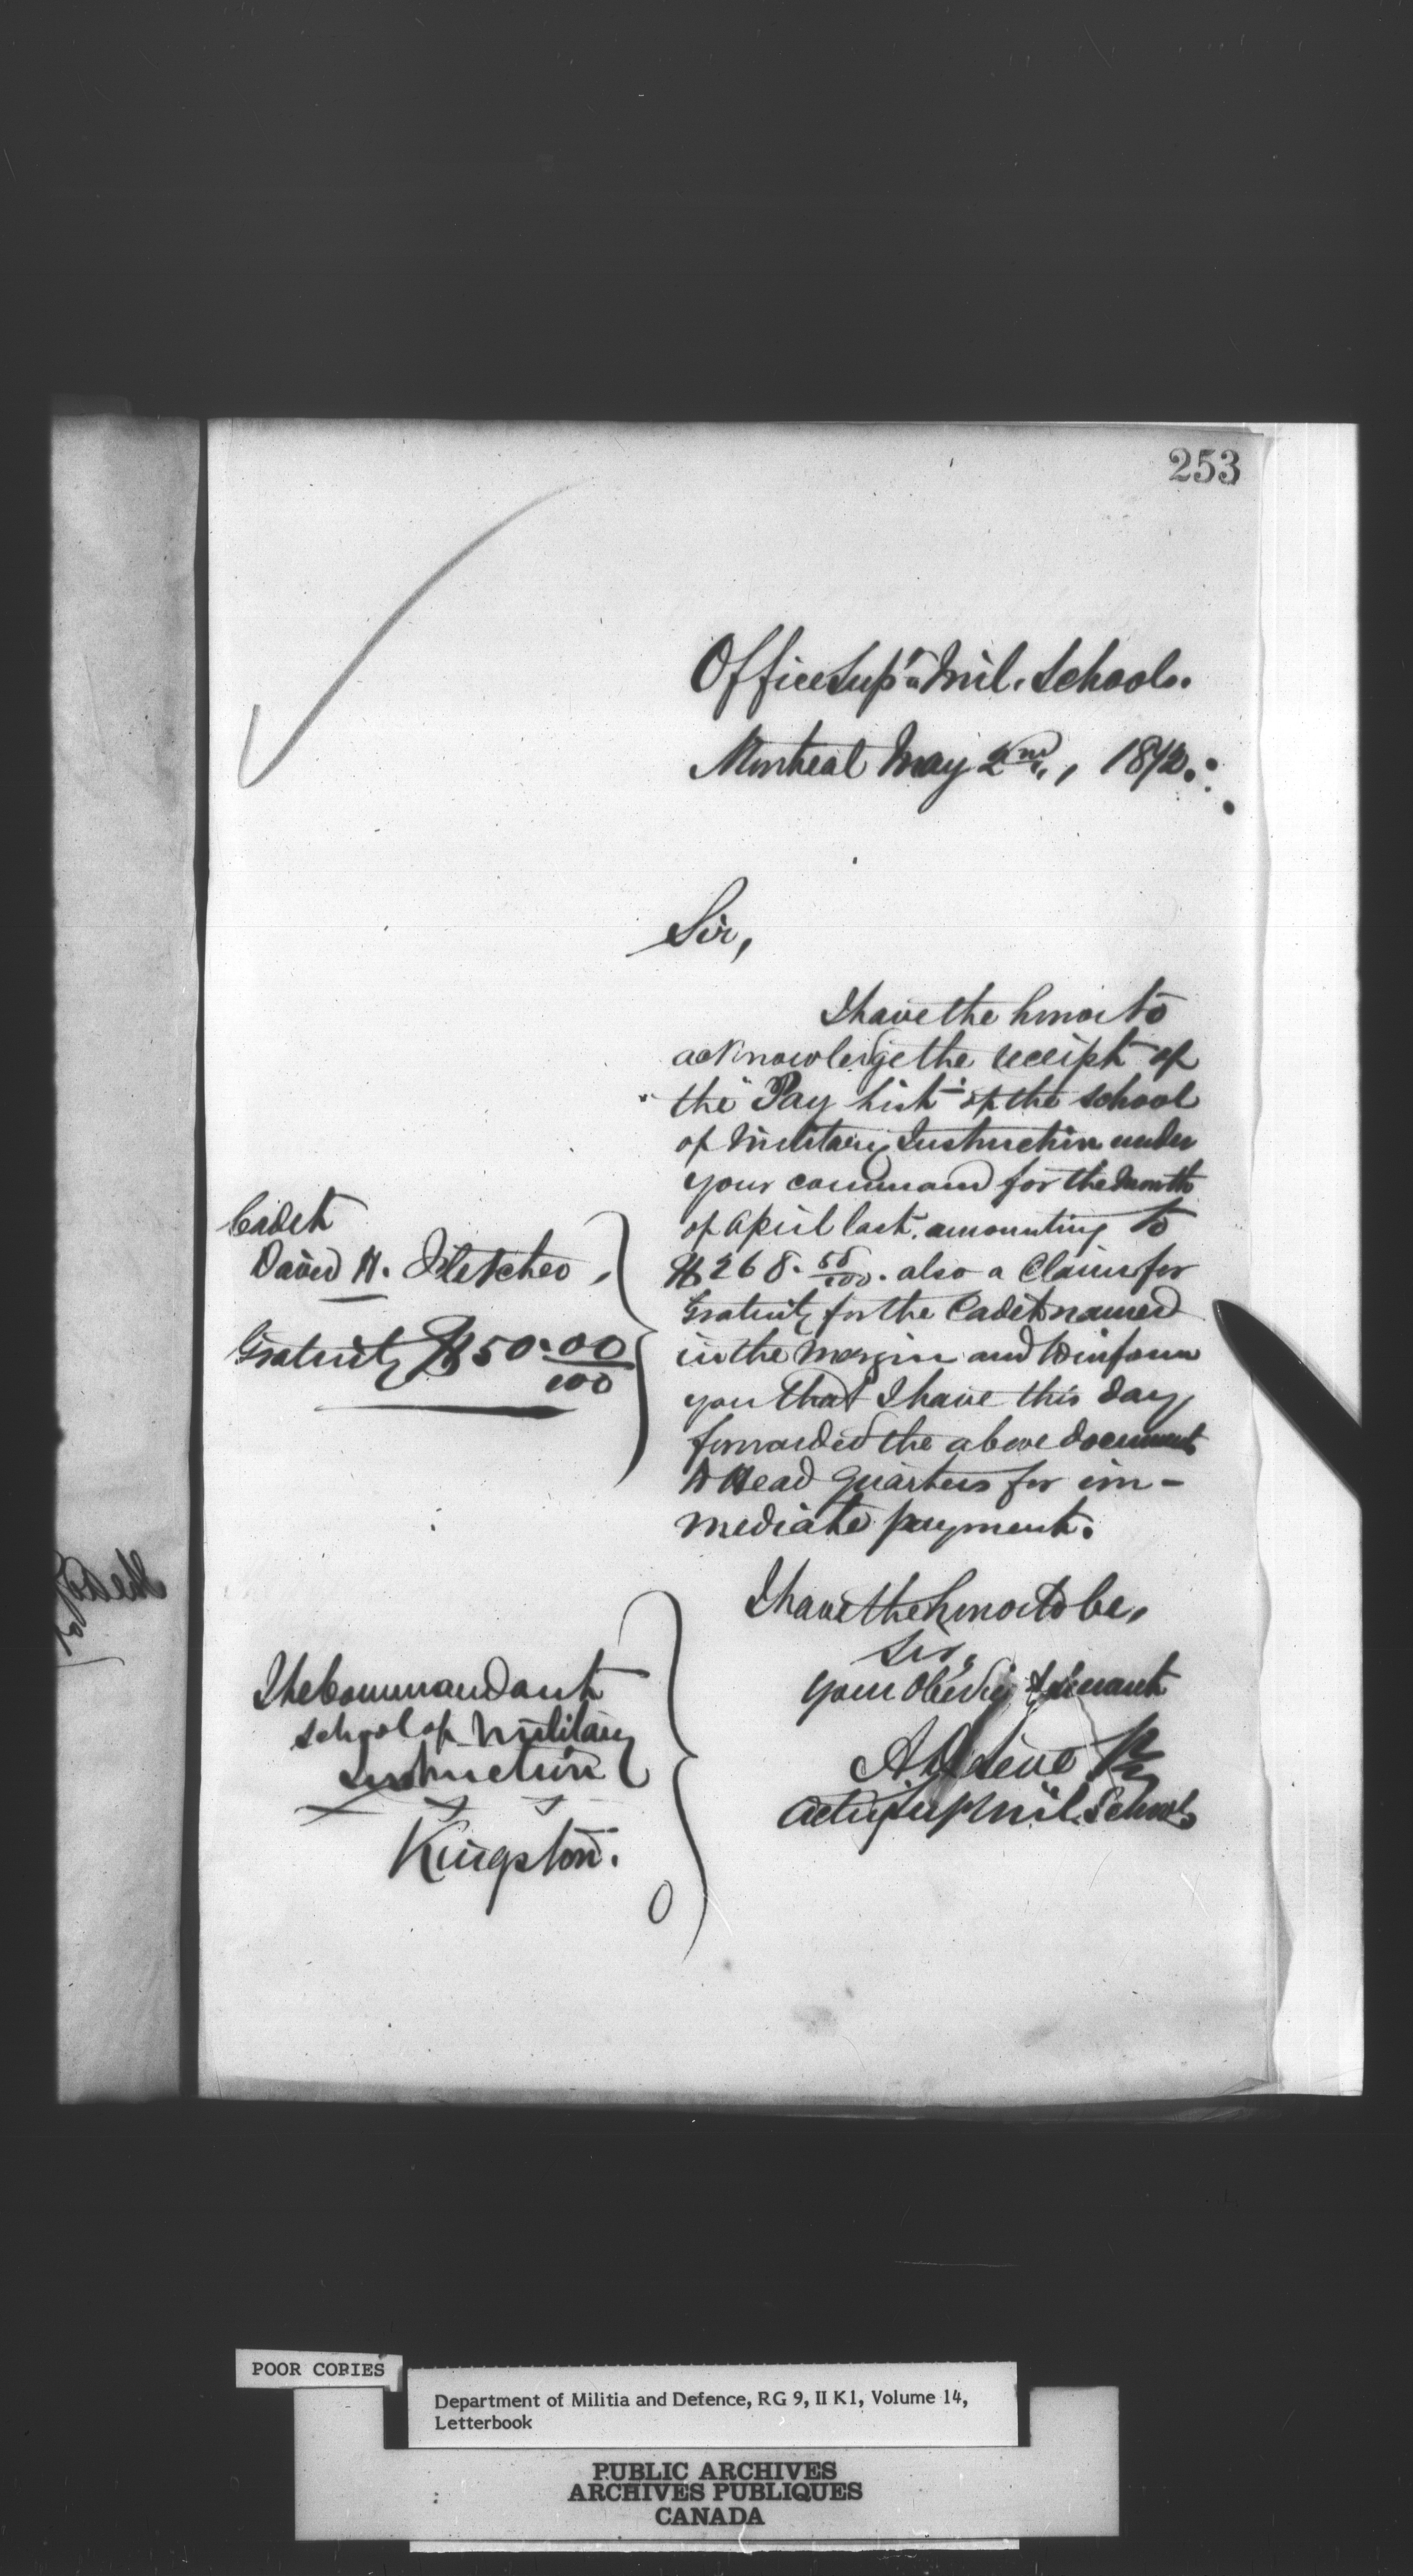 253
Office Supt Mil. Schools.
Montreal May 2nd, 1872.
Sir,
I have the honor to
acknowledge the receipt of
the "Pay List" of the School
of Military Instruction under
your command for the Month
of April last, amounting to
$268. 58/100. also a Claim for
Gratuity for the Cadet named
in the Margin and to inform
you that I have this day
forwarded the above documents
to Head Quarters for im-
mediate payment.
Cadet
David H. Fletcher,
Gratuity $50.00/100
I have the honor to be,
Sir,
your Obedient Servant
Acting Supt Mil. Schools
The Commandant
School of Military
Instruction
Kingston.
POOR COPIES
Department of Militia and Defence, RG 9, II K1, Volume 14,
Letterbook
PUBLIC ARCHIVES
ARCHIVES PUBLIQUES
CANADA